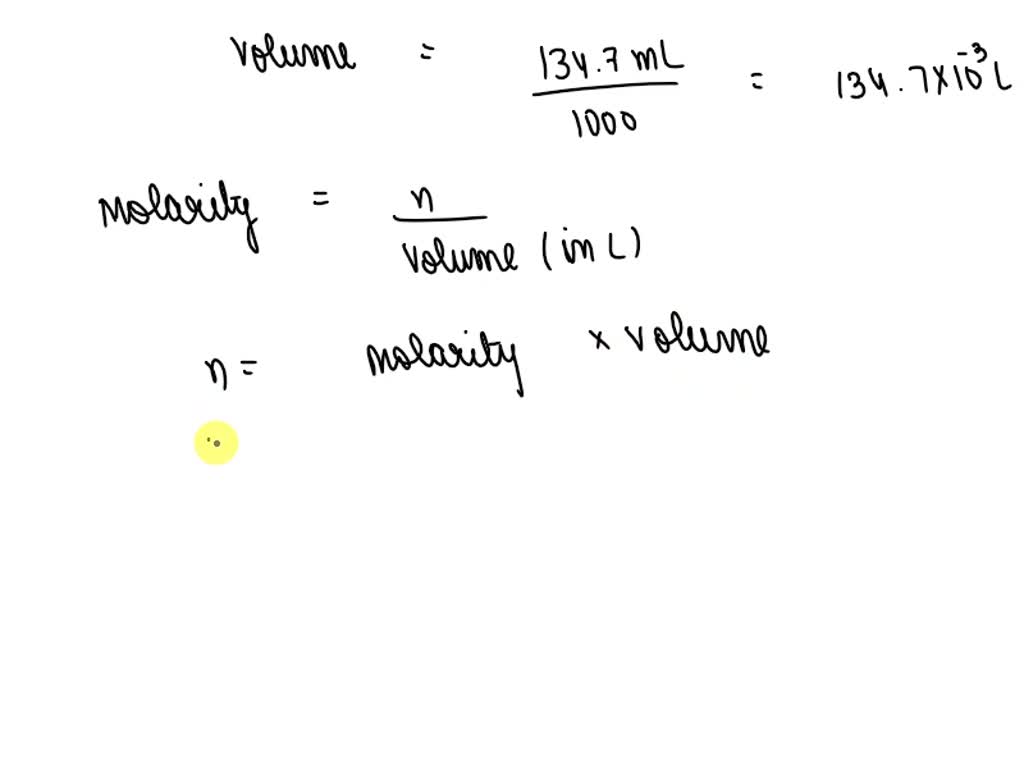 volume = 134.7 mL / 1000 = 134.7 × 10⁻³ L
molarity = n / volume (in L)
n = molarity × volume